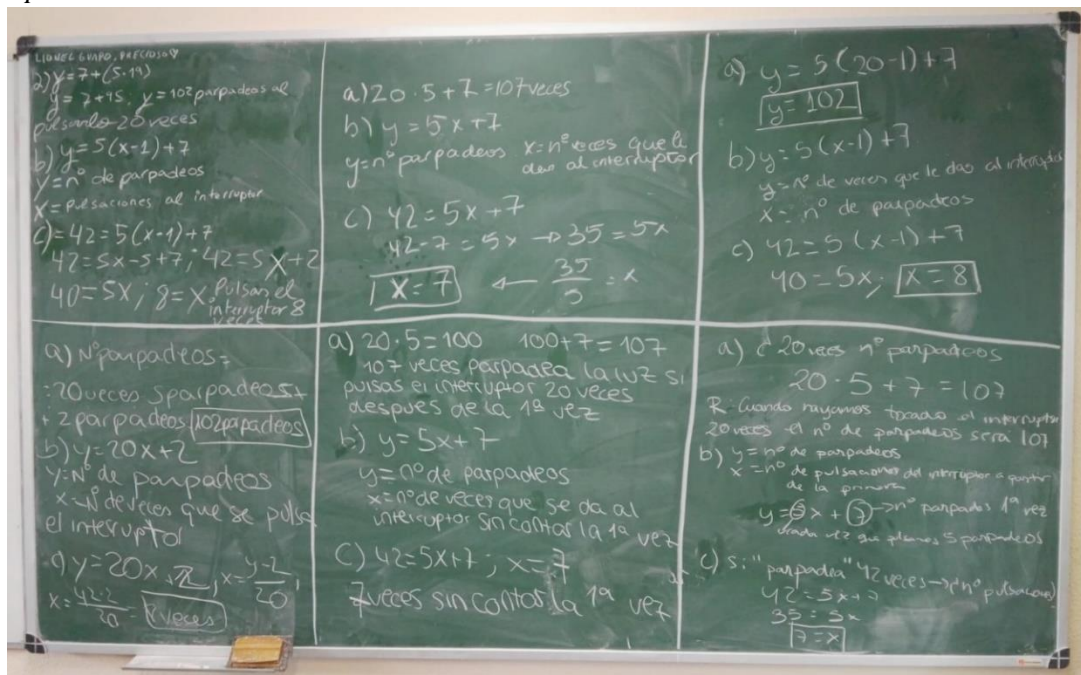 LIONEL GUAPO, PRECIOSO
a) y = 7 + (5·19)
y = 7 + 95. y = 102 parpadeos al
pulsarlo 20 veces
b) y = 5(x-1) + 7
y = nº de parpadeos
x = Pulsaciones al interruptor
c) = 42 = 5(x-1) + 7
42 = 5x - 5 + 7; 42 = 5x + 2
40 = 5x; 8 = x Pulsan el
interruptor 8
veces
a) 20·5 + 7 = 107 veces
b) y = 5x + 7
y = nº parpadeos x = nº veces que le
dan al interruptor
c) 42 = 5x + 7
42 - 7 = 5x → 35 = 5x
x = 7 ← 35/5 = x
a) y = 5(20-1) + 7
y = 102
b) y = 5(x-1) + 7
y = nº de veces que le das al interruptor
x = nº de parpadeos
c) 42 = 5(x-1) + 7
40 = 5x; x = 8
a) Nº parpadeos =
= 20 veces 5 parpadeos +
+ 2 parpadeos 102 parpadeos
b) y = 20x + 2
y = Nº de parpadeos
x = Nº de veces que se pulsa
el interruptor
c) y = 20x + 2, x = y-2/20,
x = 42-2/20 = 8 veces
a) 20·5 = 100 100 + 7 = 107
107 veces parpadea la luz si
pulsas el interruptor 20 veces
despues de la 1ª vez
b) y = 5x + 7
y = nº de parpadeos
x = nº de veces que se da al
interruptor sin contar la 1ª vez
c) 42 = 5x + 7; x = 7
7 veces sin contar la 1ª vez
a) 20 veces nº parpadeos
20·5 + 7 = 107
R: Cuando hayamos tocado el interruptor
20 veces el nº de parpadeos será 107
b) y = nº de parpadeos
x = nº de pulsaciones del interruptor a partir
de la primera
y = 5x + 7 → nº parpados 1ª vez
cada vez que 5 parpadeos
c) si "parpadea" 42 veces → nº pulsaciones
42 = 5x + 7
35 = 5x
7 = x